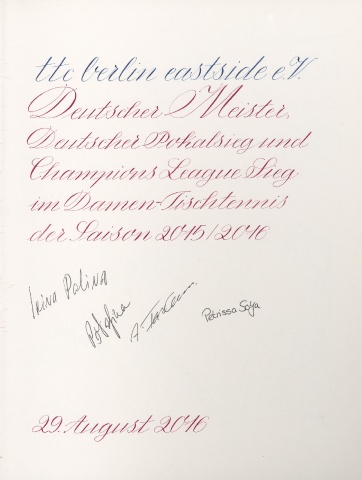 ttc berlin eastside e.V.
Deutscher Meister,
Deutscher Pokalsieg und
Champions League Sieg
im Damen-Tischtennis
der Saison 2015/2016
Irina Palina
Petrissa Solja
29. August 2016